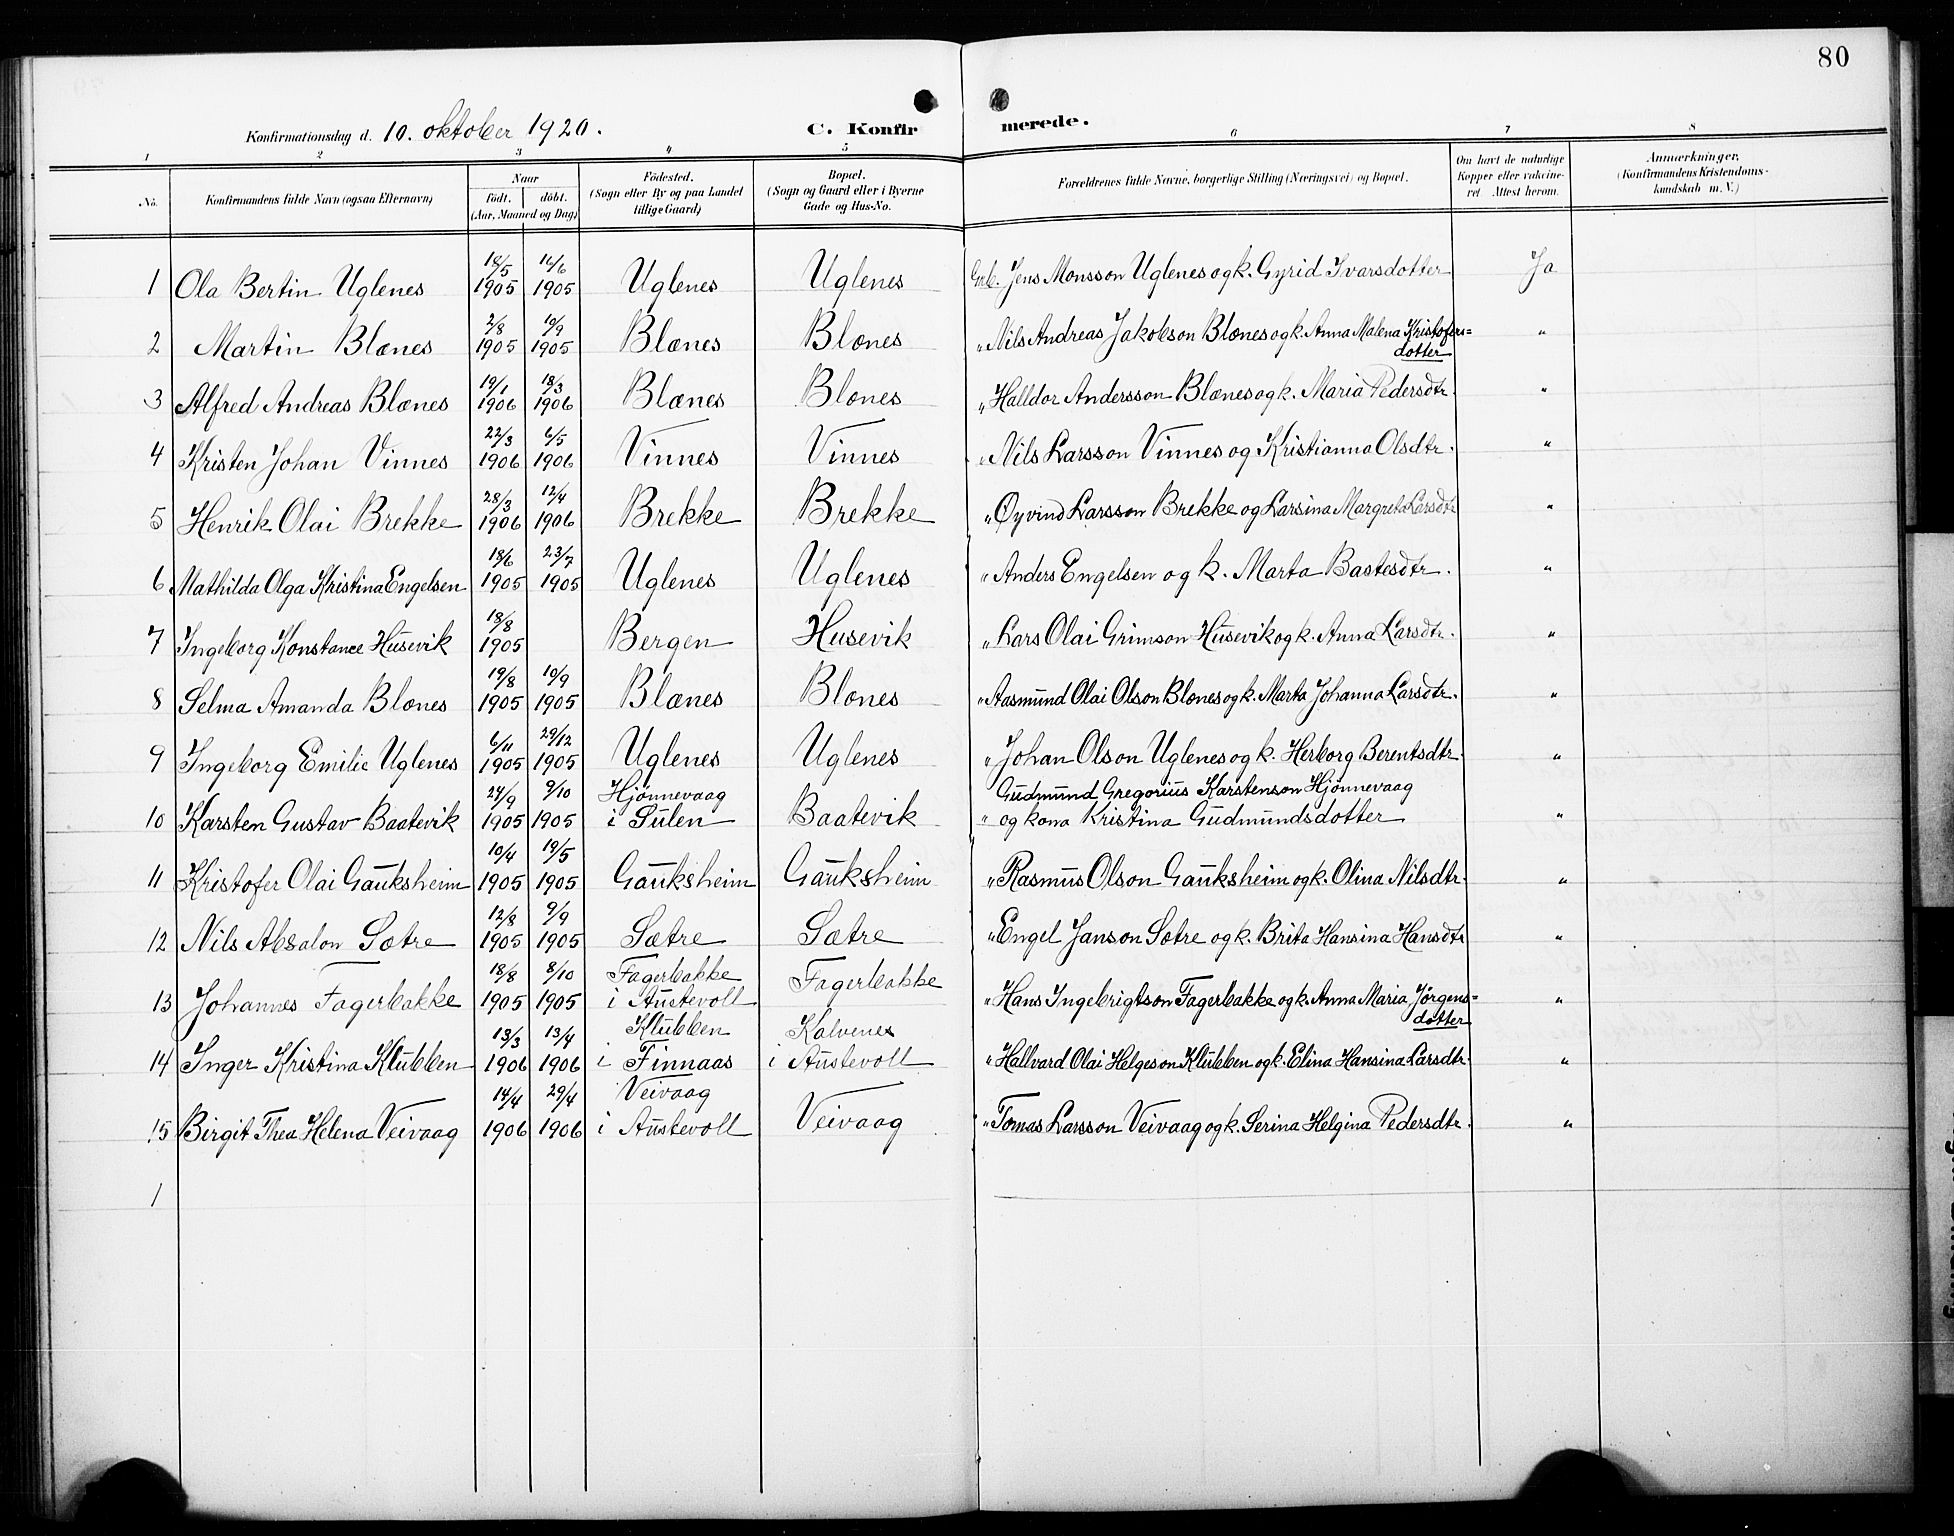 80
Konfirmationsdag d. 10. oktober 1920. C. Konfirmerede.
1 2 3 4 5 6 7 8
No. Konfirmandens fulde Navn (ogsaa Efternavn) Naar født. døbt. (Aar, Maaned og Dag) Fødested. (Sogn eller By og paa Landet tillige Gaard) Bopæl. (Sogn og Gaard eller i Byerne Gade og Hus-No. Forældrenes fulde Navne, borgerlige Stilling (Næringsvei) og Bopæl. Om havt de naturlige Kopper eller vakcineret. Attest herom. Anmærkninger. (Konfirmandens Kristendomskundskab m. V.)
1 Ola Bertin Uglenes 18/5 1905 16/6 1905 Uglenes Uglenes Grb. Jens Monsson Uglenes og k. Gyrid Ivarsdotter Ja
2 Martin Blænes 2/8 1905 10/9 1905 Blænes Blænes " Nils Andreas Jakobson Blænes og k. Anna Malena Kristofers=
dotter "
3 Alfred Andreas Blænes 19/1 1906 18/3 1906 Blænes Blænes " Halldor Andersson Blænes og k. Maria Pedersdtr. "
4 Kristen Johan Vinnes 22/3 1906 6/5 1906 Vinnes Vinnes " Nils Larsson Vinnes og Kristianna Olsdtr. "
5 Henrik Olai Brekke 28/3 1906 12/4 1906 Brekke Brekke " Øyvind Larsson Brekke og Larsina Margreta Larsdtr "
6 Mathilda Olga Kristina Engelsen 18/6 1905 23/7 1905 Uglenes Uglenes " Anders Engelsen og k. Marta Bastesdtr. "
7 Ingeborg Konstance Husevik 18/8 1905 Bergen Husevik " Lars Olai Grimson Husevik og k. Anna Larsdtr. "
8 Selma Amanda Blænes 19/8 1905 10/9 1905 Blænes Blænes " Aasmund Olai Olson Blænes og k. Marta Johanna Larsdtr. "
9 Ingeborg Emilie Uglenes 6/11 1905 29/12 1905 Uglenes Uglenes " Johan Olson Uglenes og k. Herborg Berentsdtr. "
Hjønnevaag Gudmund Gregorius Karstenson Hjønnevaag
10 Karsten Gustav Baatevik 24/9 1905 9/10 1905 i Sulen Baatevik " og kona Kristina Gudmundsdotter "
11 Kristofer Olai Gauksheim 10/4 1905 19/5 1905 Gauksheim Gauksheim " Rasmus Olson Gauksheim og k. Olina Nilsdtr. "
12 Nils Absalon Sætre 12/8 1905 9/9 1905 Sætre Sætre " Engel Janson Sætre og k. Brita Hansina Hansdtr "
Fagerbakke
13 Johannes Fagerbakke 18/8 1905 8/10 1905 i Austevoll Fagerbakke " Hans Ingebrigtson Fagerbakke og k. Anna Maria Jörgens=
dotter "
Klubben Kalvenes
14 Inger Kristina Klubben 13/3 1906 13/4 1906 i Finnaas i Austevoll " Hallvard Olai Helgeson Klubben og k. Elina Hansina Larsdtr. "
Veivaag
15 Birgit Thea Helena Veivaag 14/4 1906 29/4 1906 i Austevoll Veivaag " Tomas Larsson Veivaag og k. Serina Helgina Pedersdtr. "
1